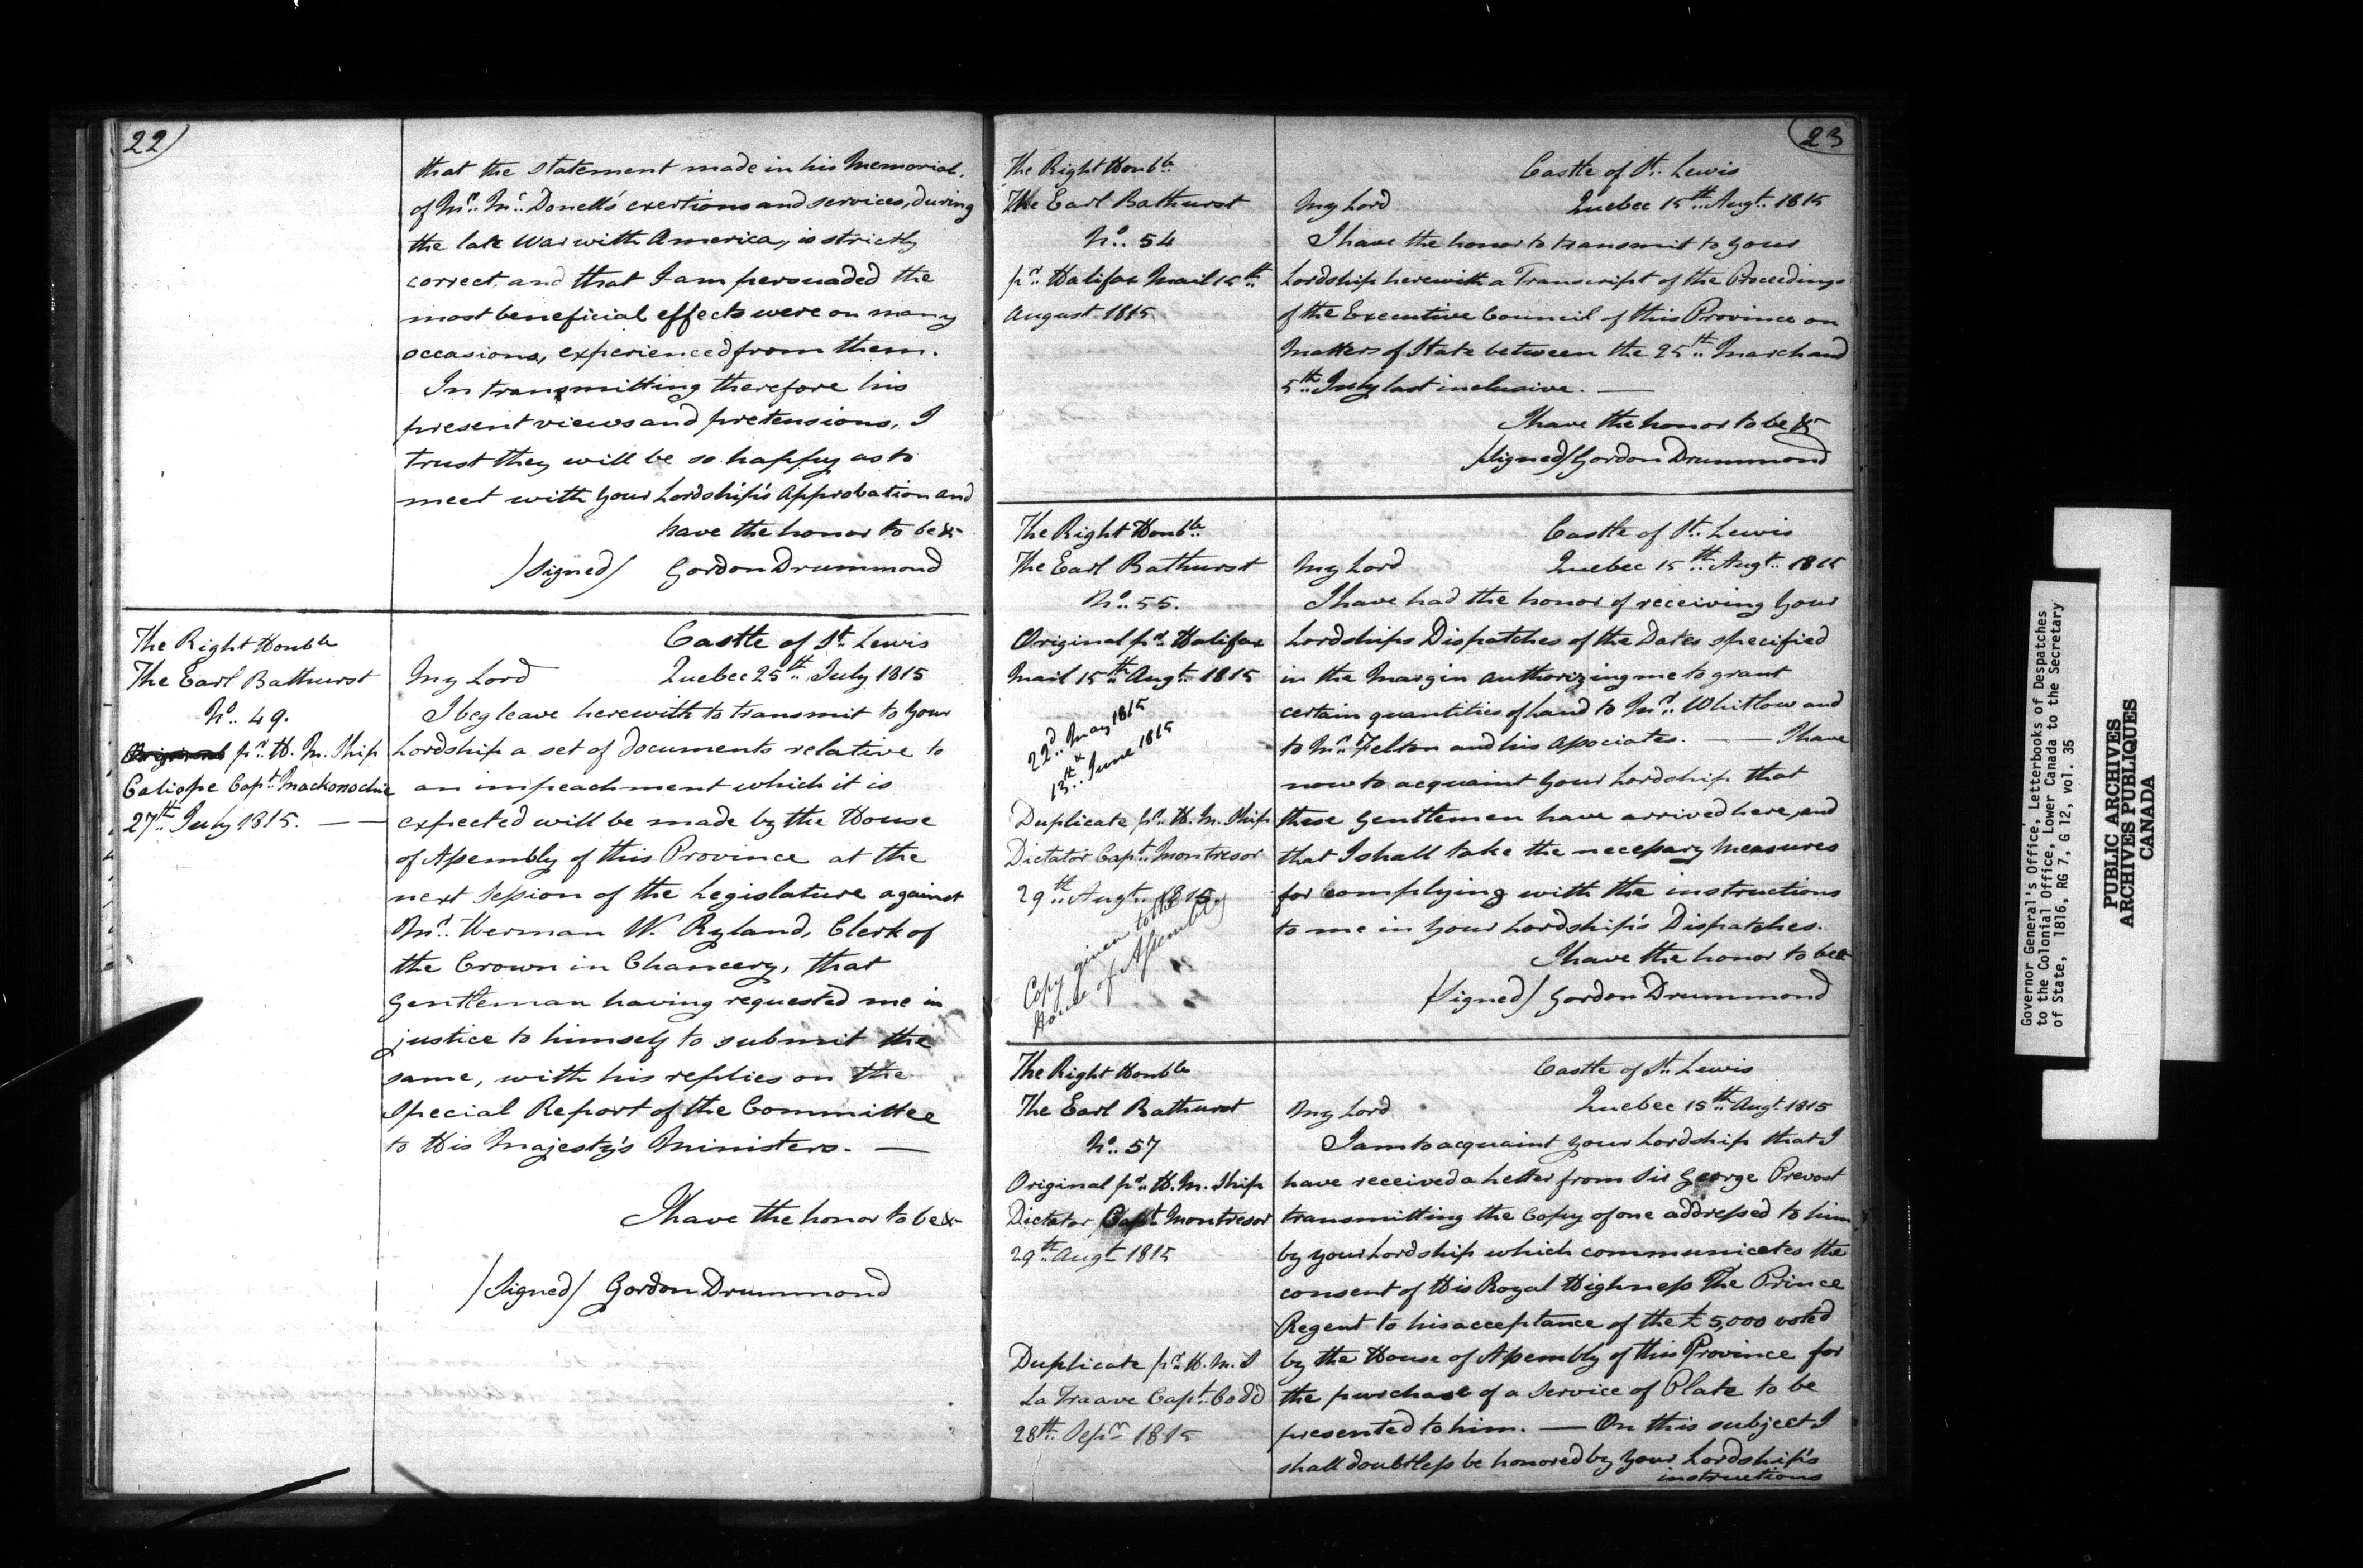 22
that the statement made in his Memorial,
of Mr. Mc. Donell's exertions and services, during
the late War with America, is strictly
correct, and that I am persuaded the
most beneficial effects were on many
occasions, experienced from them.
In transmitting therefore his
present views and pretensions, I
trust they will be so happy as to
meet with your Lordship's Approbation and
have the honor to be &c
/Signed/ Gordon Drummond
The Right Honble
The Earl Bathurst
No. 49.
Original pr. H. M. Ship
Caliope Capt. Mackonochie
27th July 1815. — —
Castle of St. Lewis
My Lord Quebec 25th July 1815
I beg leave herewith to transmit to your
Lordship a set of documents relative to
an impeachment which it is
expected will be made by the House
of Assembly of this Province at the
next Session of the Legislature against
Mr. Herman W. Ryland, Clerk of
the Crown in Chancery, that
Gentleman having requested me in
justice to himself to submit the
same, with his replies on the
Special Report of the Committee
to His Majesty's Ministers. —
I have the honor to be &c
/Signed/ Gordon Drummond
23
The Right Honble.
The Earl Bathurst
No. 54
pr. Halifax Mail 15th
August 1815
Castle of St. Lewis
My Lord Quebec 15th Augt. 1815
I have the honor to transmit to your
Lordship herewith a Transcript of the Proceedings
of the Executive Council of this Province on
Matters of State between the 25th March and
5th July last inclusive. —
I have the honor to be &c
/Signed/ Gordon Drummond
The Right Honble.
The Earl Bathurst
No. 55.
Original pr. Halifax
Mail 15th Augt. 1815
22d. May 1815
&
13th June 1815
Duplicate pr. H. M. Ship
Dictator Capt. Montresor
29th Augt. 1815
Copy given to the
House of Assembly
Castle of St. Lewis
My Lord Quebec 15th Augt. 1815
I have had the honor of receiving Your
Lordships Dispatches of the Dates specified
in the Margin authorizing me to grant
certain quantities of Land to Mr. Whitlow and
to Mr. Felton and his Associates. — — I have
now to acquaint Your Lordship that
these Gentlemen have arrived here, and
that I shall take the necessary Measures
for complying with the instructions
to me in Your Lordship's Dispatches.
I have the honor to be &c
/Signed/ Gordon Drummond
The Right Honble
The Earl Bathurst
No. 57
Original pr. H. M. Ship
Dictator Capt. Montresor
29th Augt 1815
Duplicate pr. H. M. S
La Traave Capt. Codd
28th Sepr 1815
Castle of St. Lewis
My Lord Quebec 15th Augt 1815
I am to acquaint your Lordship that I
have received a Letter from Sir George Prevost
transmitting the Copy of one addressed to him
by your Lordship which communicates the
consent of His Royal Highness The Prince
Regent to his acceptance of the £5,000 voted
by the House of Assembly of this Province for
the purchase of a Service of Plate to be
presented to him. — On this subject I
shall doubtless be honored by Your Lordship's
instructions
Governor General's Office, Letterbooks of Despatches
to the Colonial Office, Lower Canada to the Secretary
of State, 1816, RG 7, G 12, vol. 35
PUBLIC ARCHIVES
ARCHIVES PUBLIQUES
CANADA